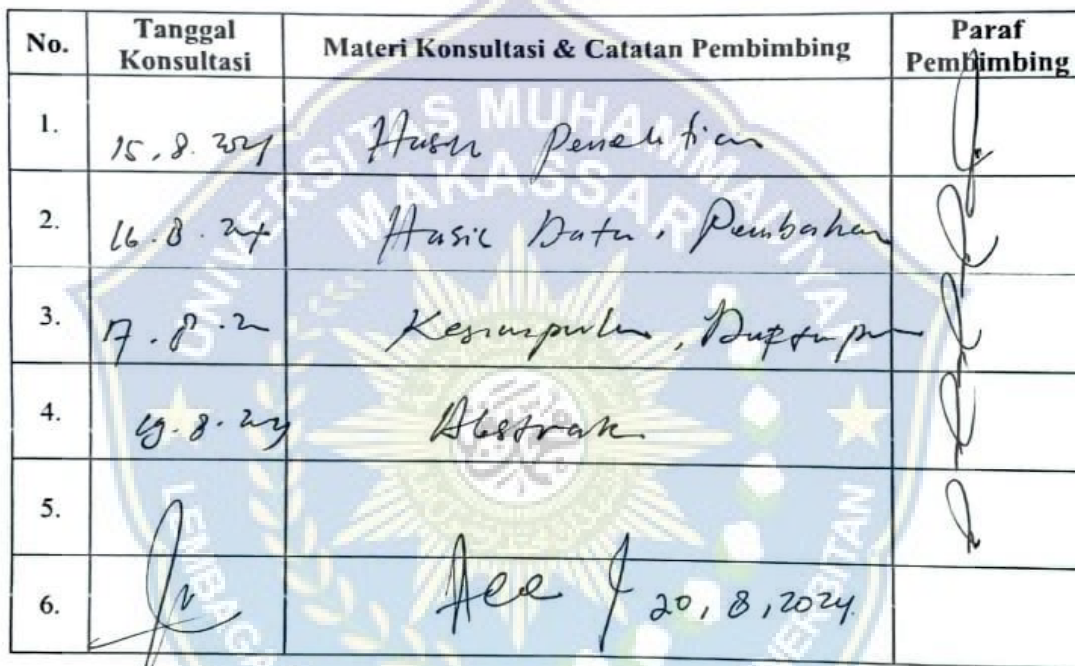 No. Tanggal Konsultasi Materi Konsultasi & Catatan Pembimbing Paraf Pembimbing
1. 15.8.2024 Hasil Penelitian
2. 16.8.24 Hasil Data, Pembahan
3. 17.8.2 Kesimpulan,
4. 19.8.24 Abstrak
5.
6. Acc 20, 8, 2024
UNIVERSITAS MUHAMMADIYAH
MAKASSAR
LEMBAGA
ERBITAN